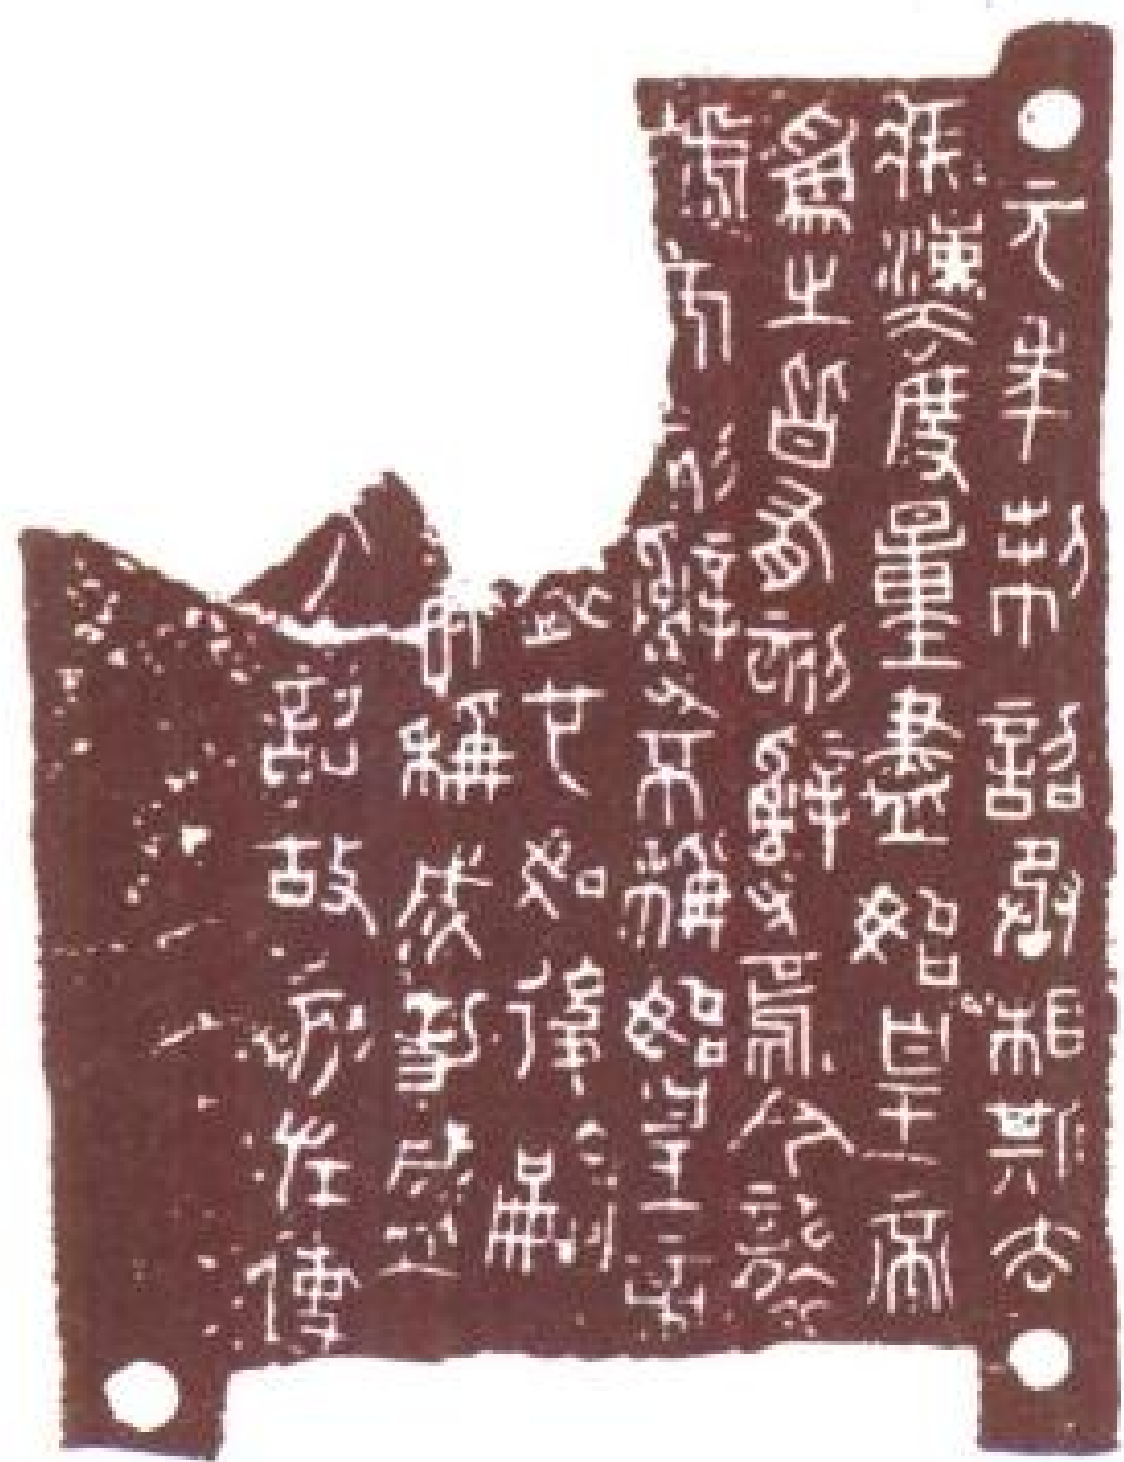 元年制詔丞相斯去
疾灋度量盡始皇帝
爲之皆有刻辭焉今襲
號而刻辭不稱始皇帝
遠也如後嗣
稱成功盛
詔故刻左使